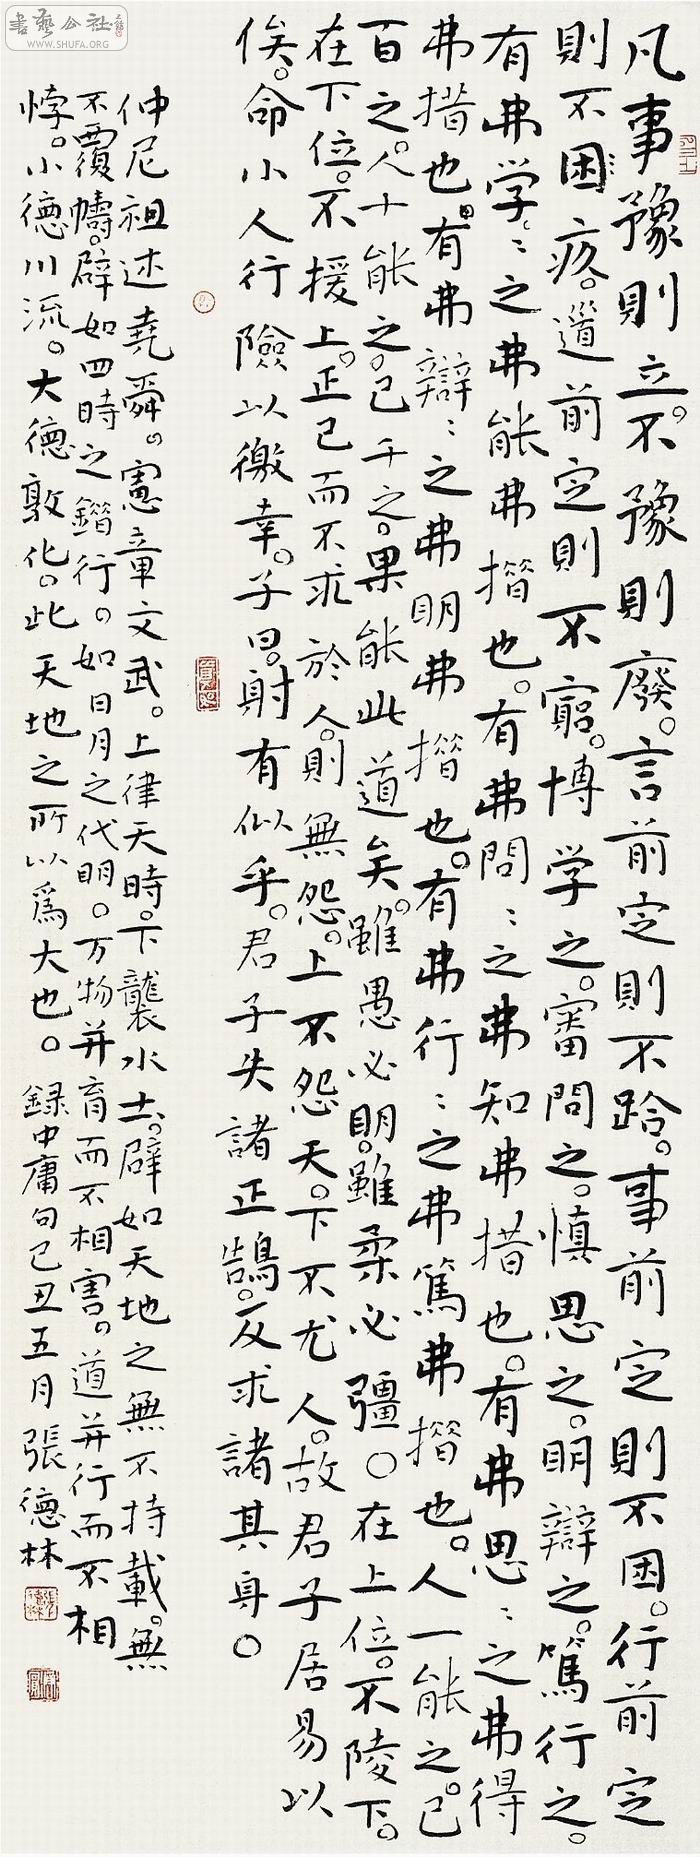 書藝公社
WWW.SHUFA.ORG
凡事豫則立。不豫則廢。言前定則不跲。事前定則不困。行前定
則不困疚。道前定則不窮。博学之。審問之。慎思之。明辯之。篤行之。
有弗学。〻之弗能弗措也。有弗問〻之弗知弗措也。有弗思〻之弗得
弗措也。有弗辯〻之弗明弗措也。有弗行〻之弗篤弗措也。人一能之。己
百之。人十能之。己千之。果能此道矣。雖愚必明。雖柔必彊○在上位。不陵下。
在下位。不援上。正己而不求於人。則無怨。上不怨天。下不尤人。故君子居易以
俟。命小人行險以徼幸。子曰。射有似乎。君子失諸正鵠。反求諸其身○
仲尼祖述堯舜。憲章文武。上律天時。下襲水土。辟如天地之無不持載。無
不覆幬。辟如四時之錯行。如日月之代明。万物并育而不相害。道并行而不相
悖。小德川流。大德敦化。此天地之所以爲大也。録中庸句己丑五月張德林